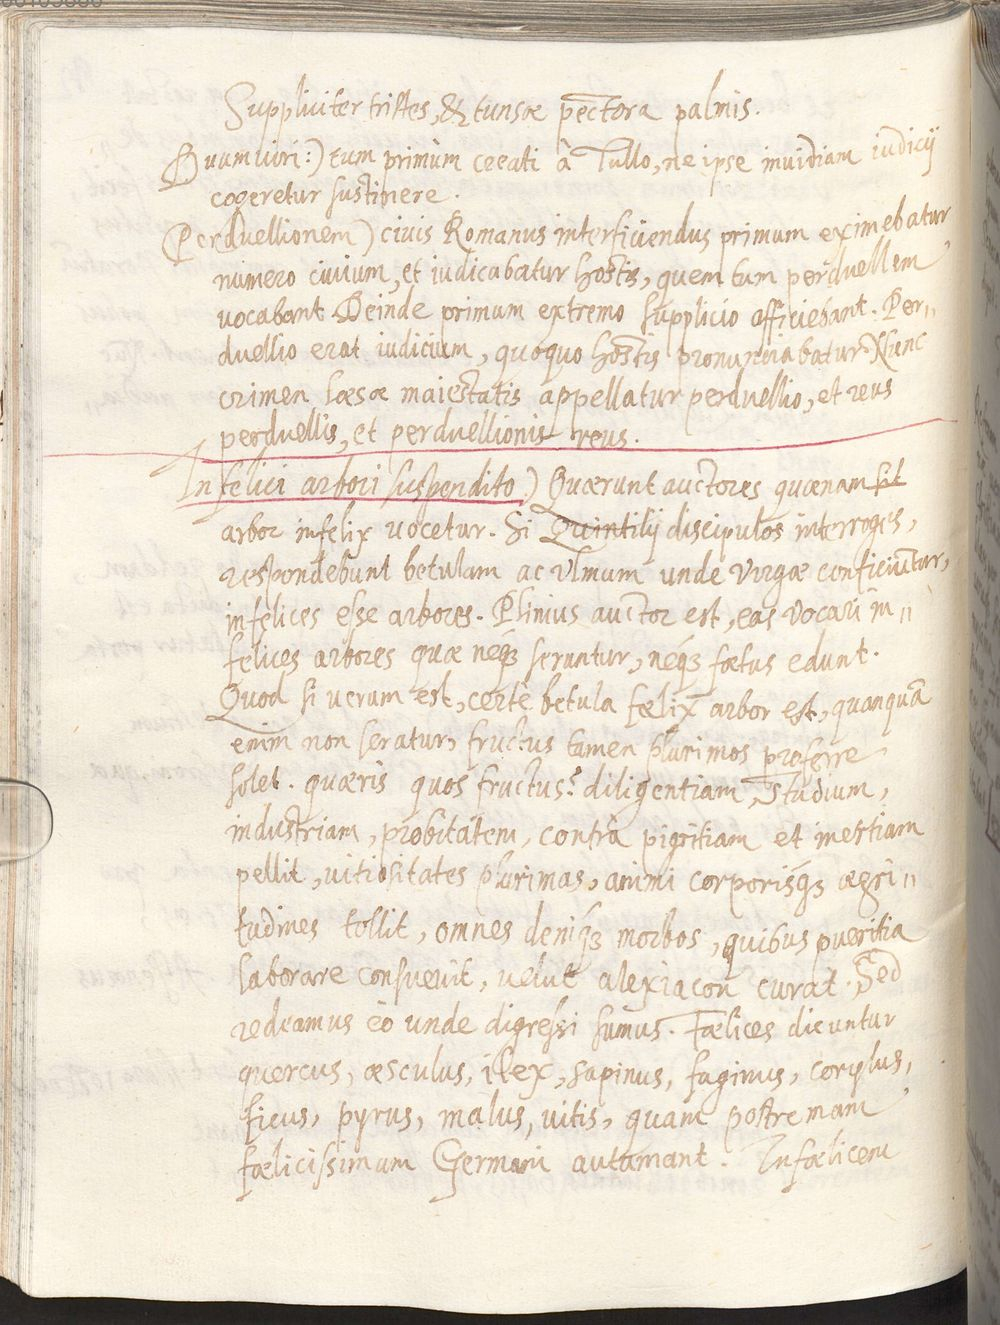 Suppliciter tristes, & tunsæ pectora palmis.
Duumuiri:) tum primùm creati à Tullo, ne ipse inuidiam iudicij
cogeretur sustinere.
Perduellionem) ciuis Romanus interficiendus primum eximebatur
numero ciuium, et iudicabatur hostis, quem tum perduellem
vocabant. Deinde primum extremo supplicio afficiebant. Per„
duellio erat iudicium, quoquo hostis pronunciabatur. Nunc
crimen læsæ maiestatis appellatur perduellio, et reus
perduellis, et perduellionis reus.
Infelici arbori suspendito) Quærunt auctores quænam sit
arbor infelix vocetur. Si Quintilij discipulos interroges,
respondebunt betulam ac vlmum unde virgæ conficiuntur,
infelices esse arbores. Plinius auctor est, eas vocari in„
felices arbores quæ neq3 seruntur, neq3 fœtus edunt.
Quod si uerum est, certè betula fœlix arbor est, quanquã
enim non seratur, fructus tamen plurimos proferre
solet. quæris quos fructus? diligentiam, studium,
industriam, probitatem, contra pigritiam et inertiam
pellit, uitiositates plurimas, animi corporisq3 ægri„
tudines tollit, omnes deniq3 morbos, quibus pueritia
laborare consueuit, uelut alexiacon curat. Sed
redeamus eò unde digressi sumus. Fœlices dicuntur
quercus, æsculus, ilex, sapinus, faginus, corylus,
ficus, pyrus, malus, uitis, quam postremam
fœlicissimam Germani autamant. Infœlicem